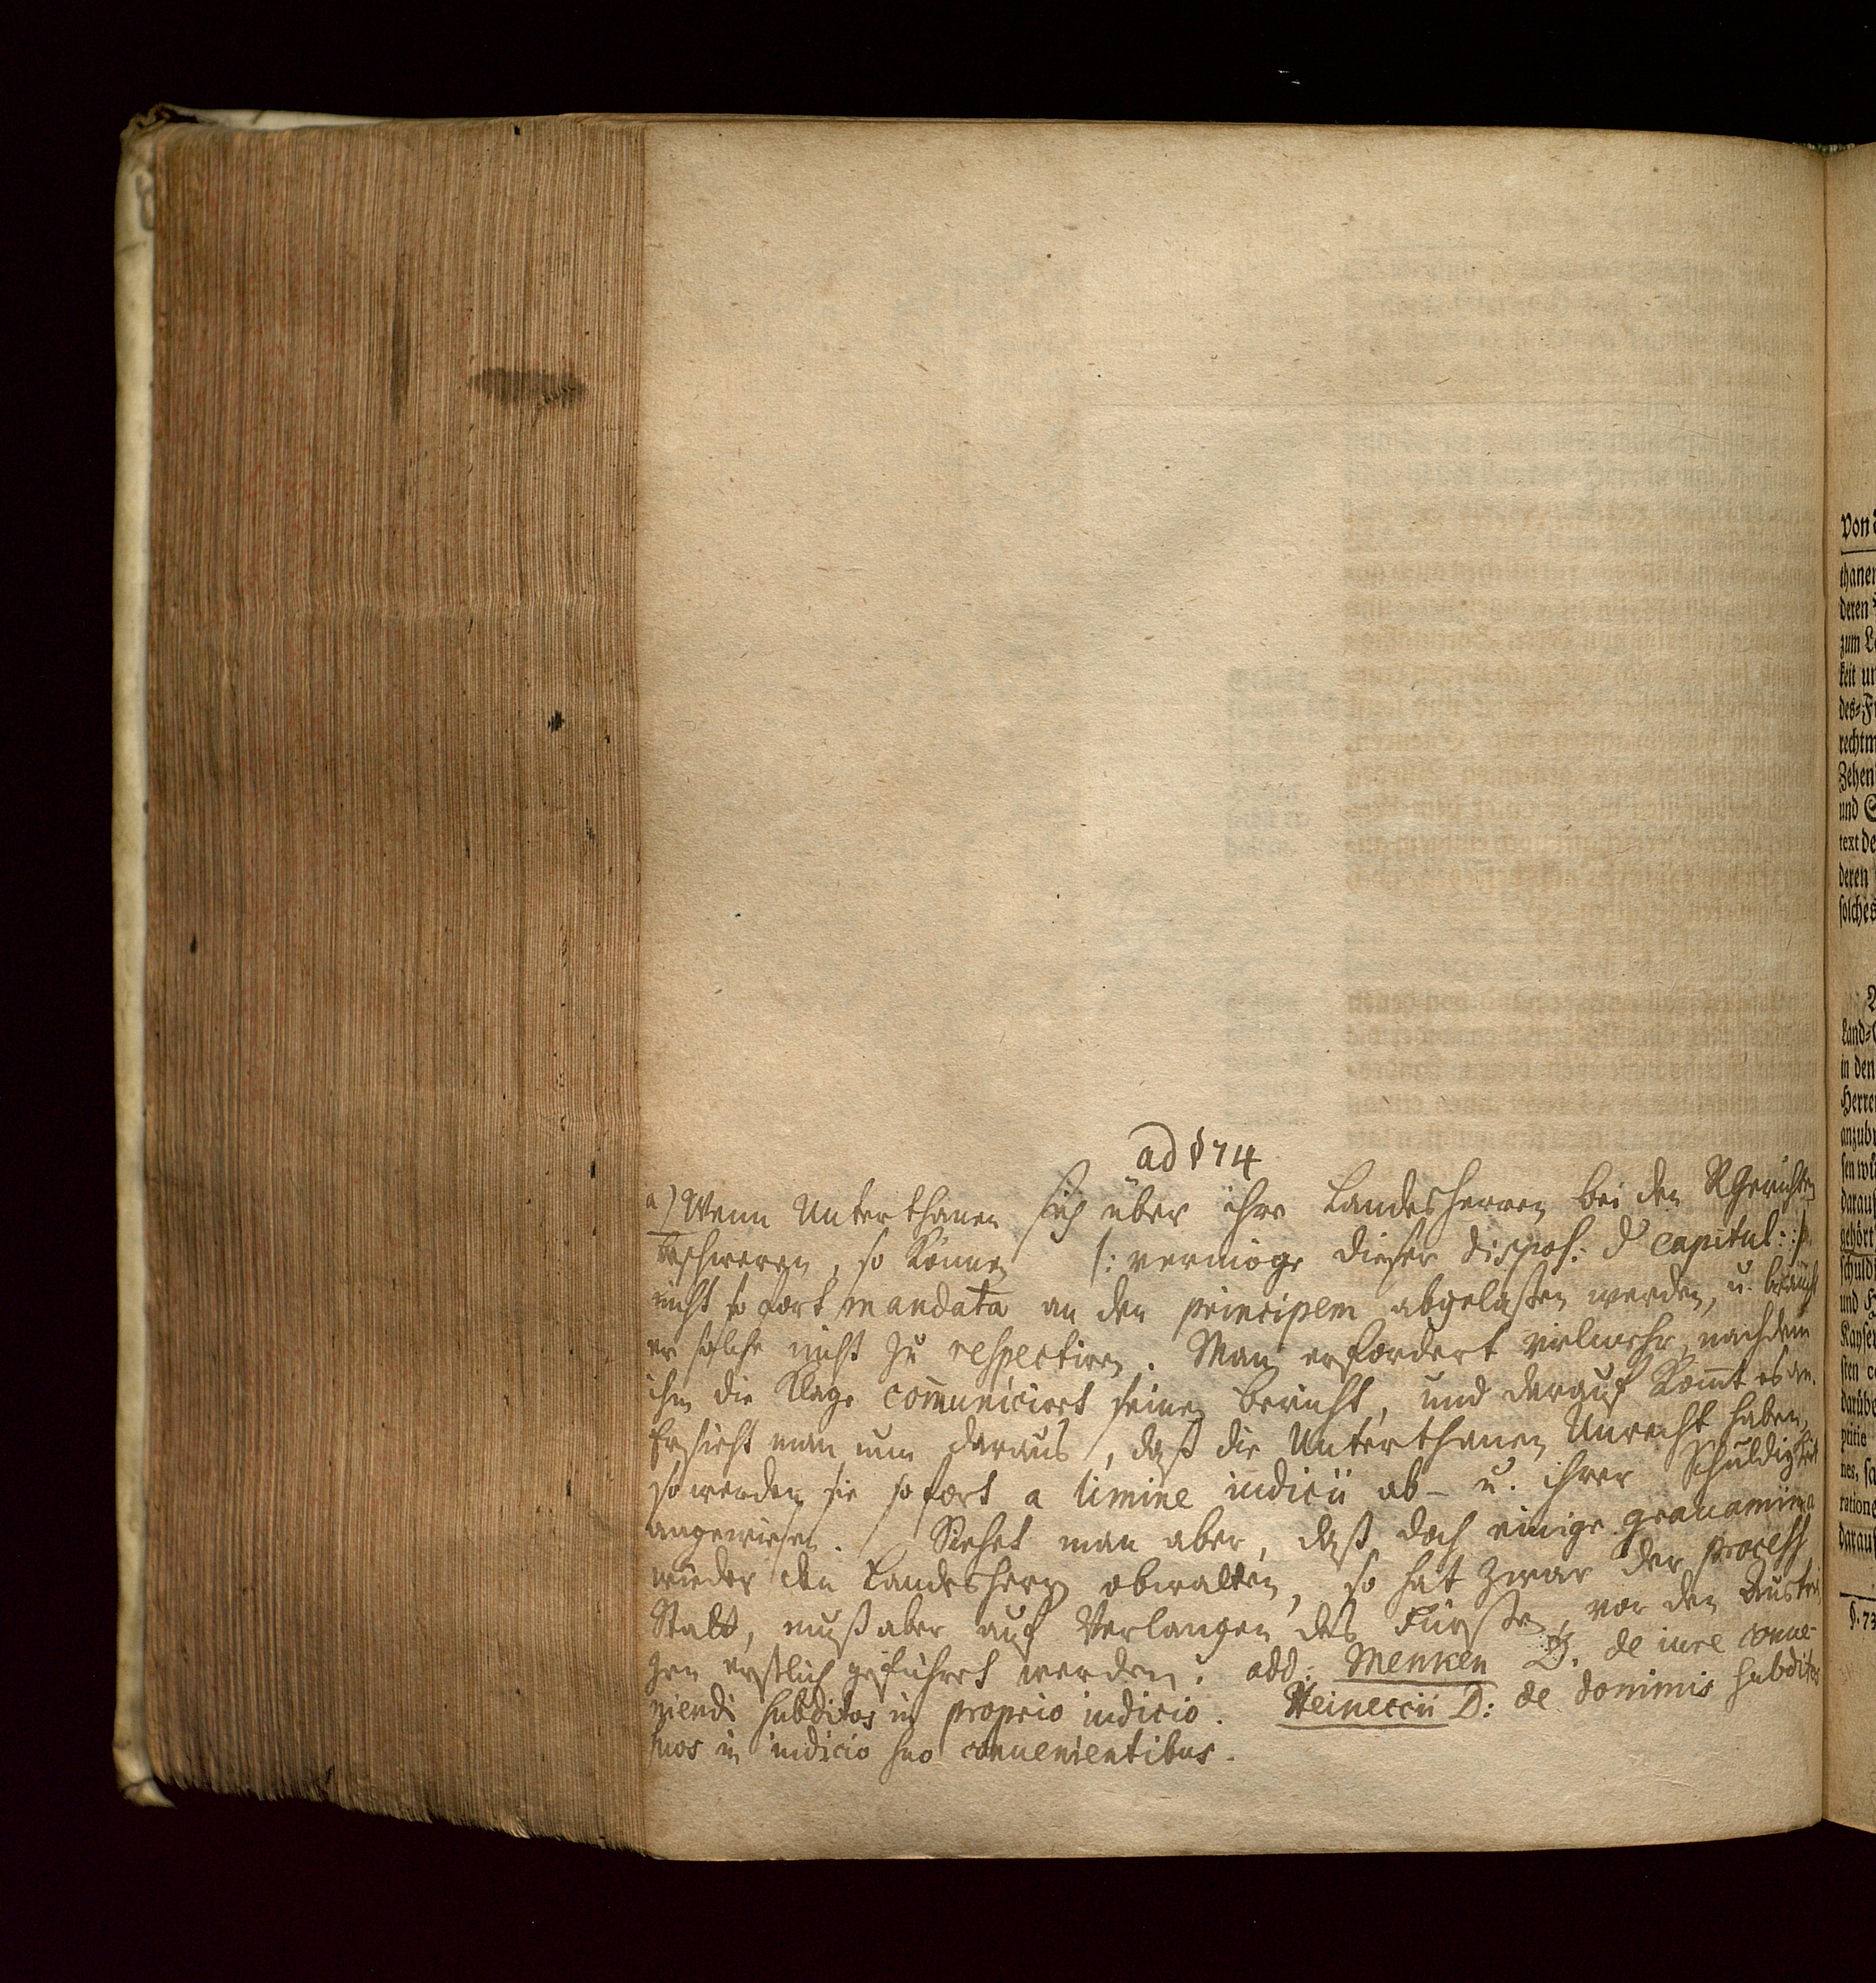 ad § 74
a) Wenn Unterthanen sich über ihre Landesherren bei den RGerichten
beschweren, so können /: vermöge dieser disposs. d capitul: :/
nicht so fort mandata an den principem abgelaßen werden, u. braucht
er solche nicht zu respectiren. Man erfordert vielmehr, nachdem
ihm die Klage com̄uniciert seinen Bericht, und darauf kom̄t es an.
Ersieht man nun daraus, daß die Unterthanen Unrecht haben,
so werden sie so fort a limine iudicii ab- u. ihrer Schuldigkeit
angewiesen. Siehet man aber, daß doch einige grauamina
wieder den Landesherrn obwalten, so hat zwar der process
Statt, muß aber auf Verlangen des Fürsten, vor den Austrä
gen erstlich geführet werden. add. Menken D. de iure conue-
niendi subditos in proprio iudicio. Heineccii D: de dominis subditos
suos in iudicio suo conuenientibus.
Von
thanen
deren
zum
keit
des-
rechtm
Zehen
und
text de
deren
solches
Land-
in den
Herren
anzub
sen
darauf
gehört
schuldi
und
Kayser
sten
darübe
ptitie
nes,
ratione
darauf
§. 73